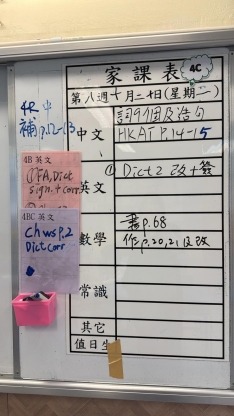 家課表
4C
第八週十月二十日(星期二)
4R 中
補p.12-13
中文
詞9個及造句
HKAT P.14-15
4B 英文
①FA, Dict
sign. + corr
英文
① Dict 2 改+簽
4BC 英文
Ch ws p.2
Dict corr
數學
書p.68
作p.20,21及改
常識
其它
值日生